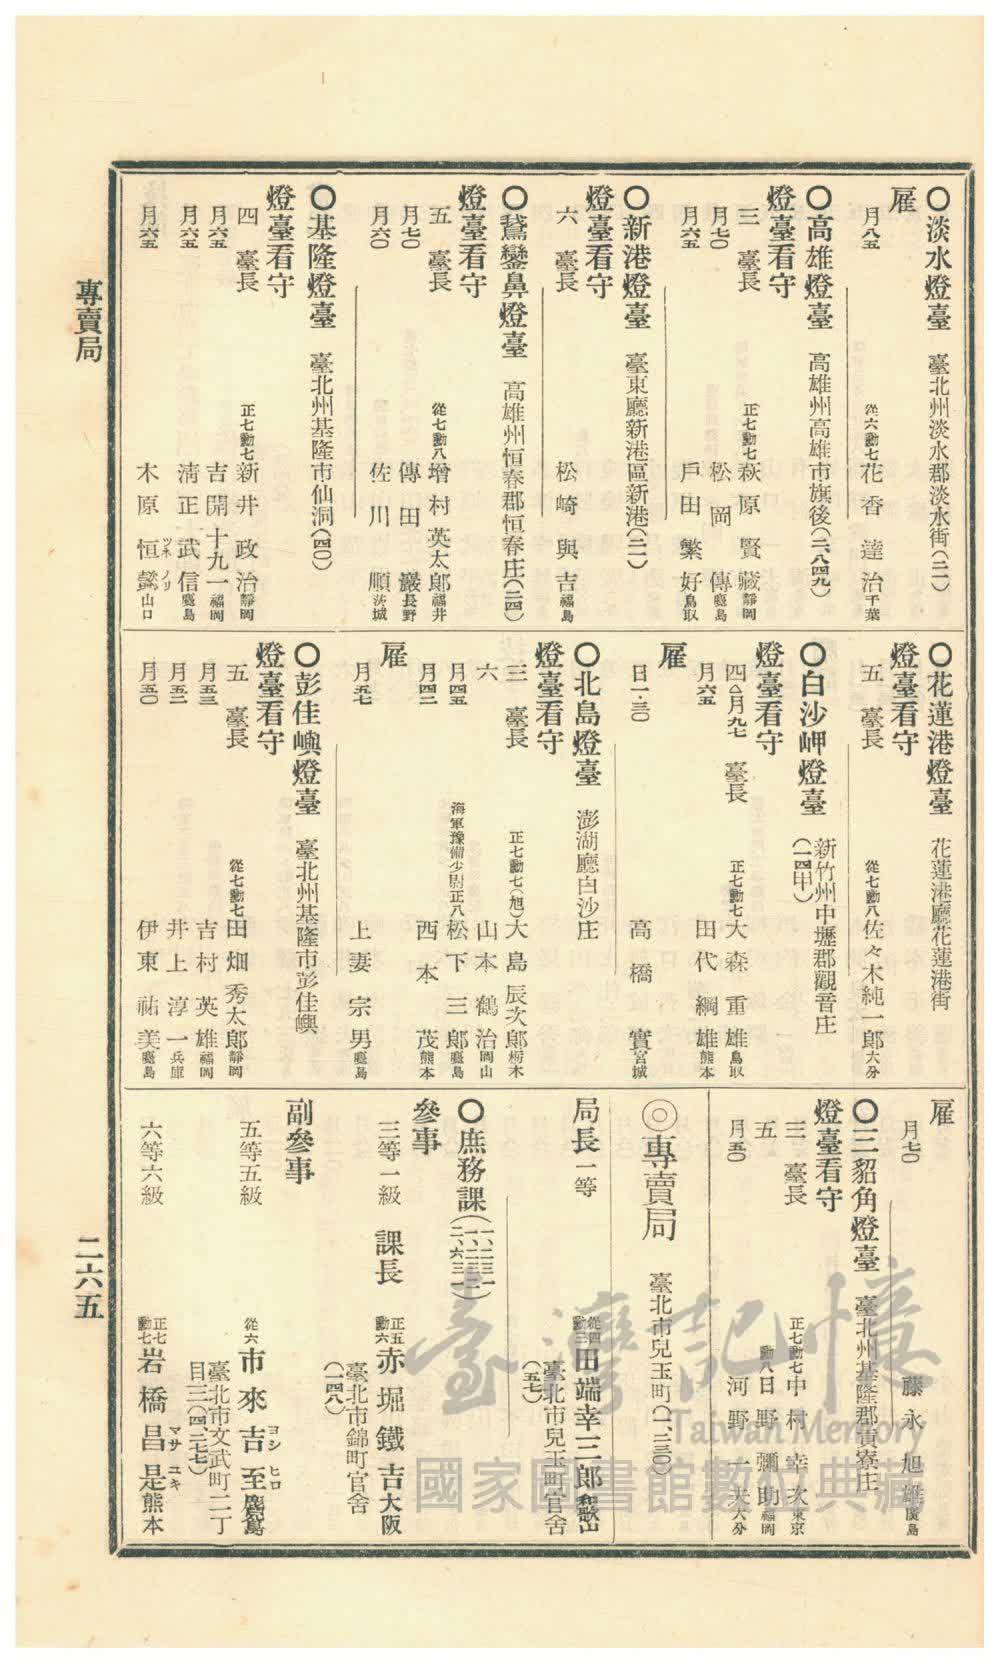 ○淡水燈臺 臺北州淡水郡淡水街(三一)
雇
月八五 從六勳七 花香達治 千葉
○高雄燈臺 高雄州高雄市旗後(二、八四九)
燈臺看守
三 臺長 正七勳七 萩原賢藏 靜岡
月七〇 松岡傳 鹿島
月六五 戶田繁好 鳥取
○新港燈臺 臺東廳新港區新港(二一)
燈臺看守
六 臺長 松崎與吉 福島
○鵞鑾鼻燈臺 高雄州恒春郡恒春庄(二四)
燈臺看守
五 臺長 從七勳八 增村英太郎 福井
月七〇 傳田巖 長野
月六〇 佐川順 茨城
○基隆燈臺 臺北州基隆市仙洞(四〇)
燈臺看守
四 臺長 正七勳七 新井政治 靜岡
月六五 吉開十九一 福岡
月六五 淸正武信 鹿島
月六五 木原恒懿 ツネノリ 山口
○花蓮港燈臺 花蓮港廳花蓮港街
燈臺看守
五 臺長 從七勳八 佐々木純一郎 大分
○白沙岬燈臺 新竹州中壢郡觀音庄
(一四甲)
燈臺看守
四 月九七 臺長 正七勳七 大森重雄 鳥取
月六五 田代綱雄 熊本
雇
日一・三〇 高橋實 宮城
○北島燈臺 澎湖廳白沙庄
燈臺看守
三 臺長 正七勳七(旭) 大島辰次郎 栃木
六 山本鶴治 岡山
月四五 海軍豫備少尉正八 松下三郎 鹿島
月四二 西本茂 熊本
雇
月五七 上妻宗男 鹿島
○彭佳嶼燈臺 臺北州基隆市彭佳嶼
燈臺看守
五 臺長 從七勳七 田畑秀太郎 靜岡
月五三 吉村英雄 福岡
月五二 井上淳一 兵庫
月五〇 伊東祐美 鹿島
雇
月七〇 藤永旭雄 廣島
○三貂角燈臺 臺北州基隆郡貢寮庄
燈臺看守
三 臺長 正七勳七 中村幸次 東京
五 勳八 日野彌助 福岡
月五〇 河野一夫 大分
◎專賣局 臺北市兒玉町(一、二三〇)
局長 一等 從四勳三 田端幸三郎 和歌山
臺北市兒玉町官舍
(五七)
○庶務課
參事
三等一級 課長 正五勳六 赤堀鐵吉 大阪
臺北市錦町官舍
(一四八)
副參事
五等五級 從六 市來吉至 ヨシヒロ 鹿兒島
臺北市文武町二丁
目三(四、二七七)
六等六級 正七勳七 岩橋昌是 マサユキ 熊本
專賣局
二六五
臺灣記憶
Taiwan Memory
國家圖書館數位典藏